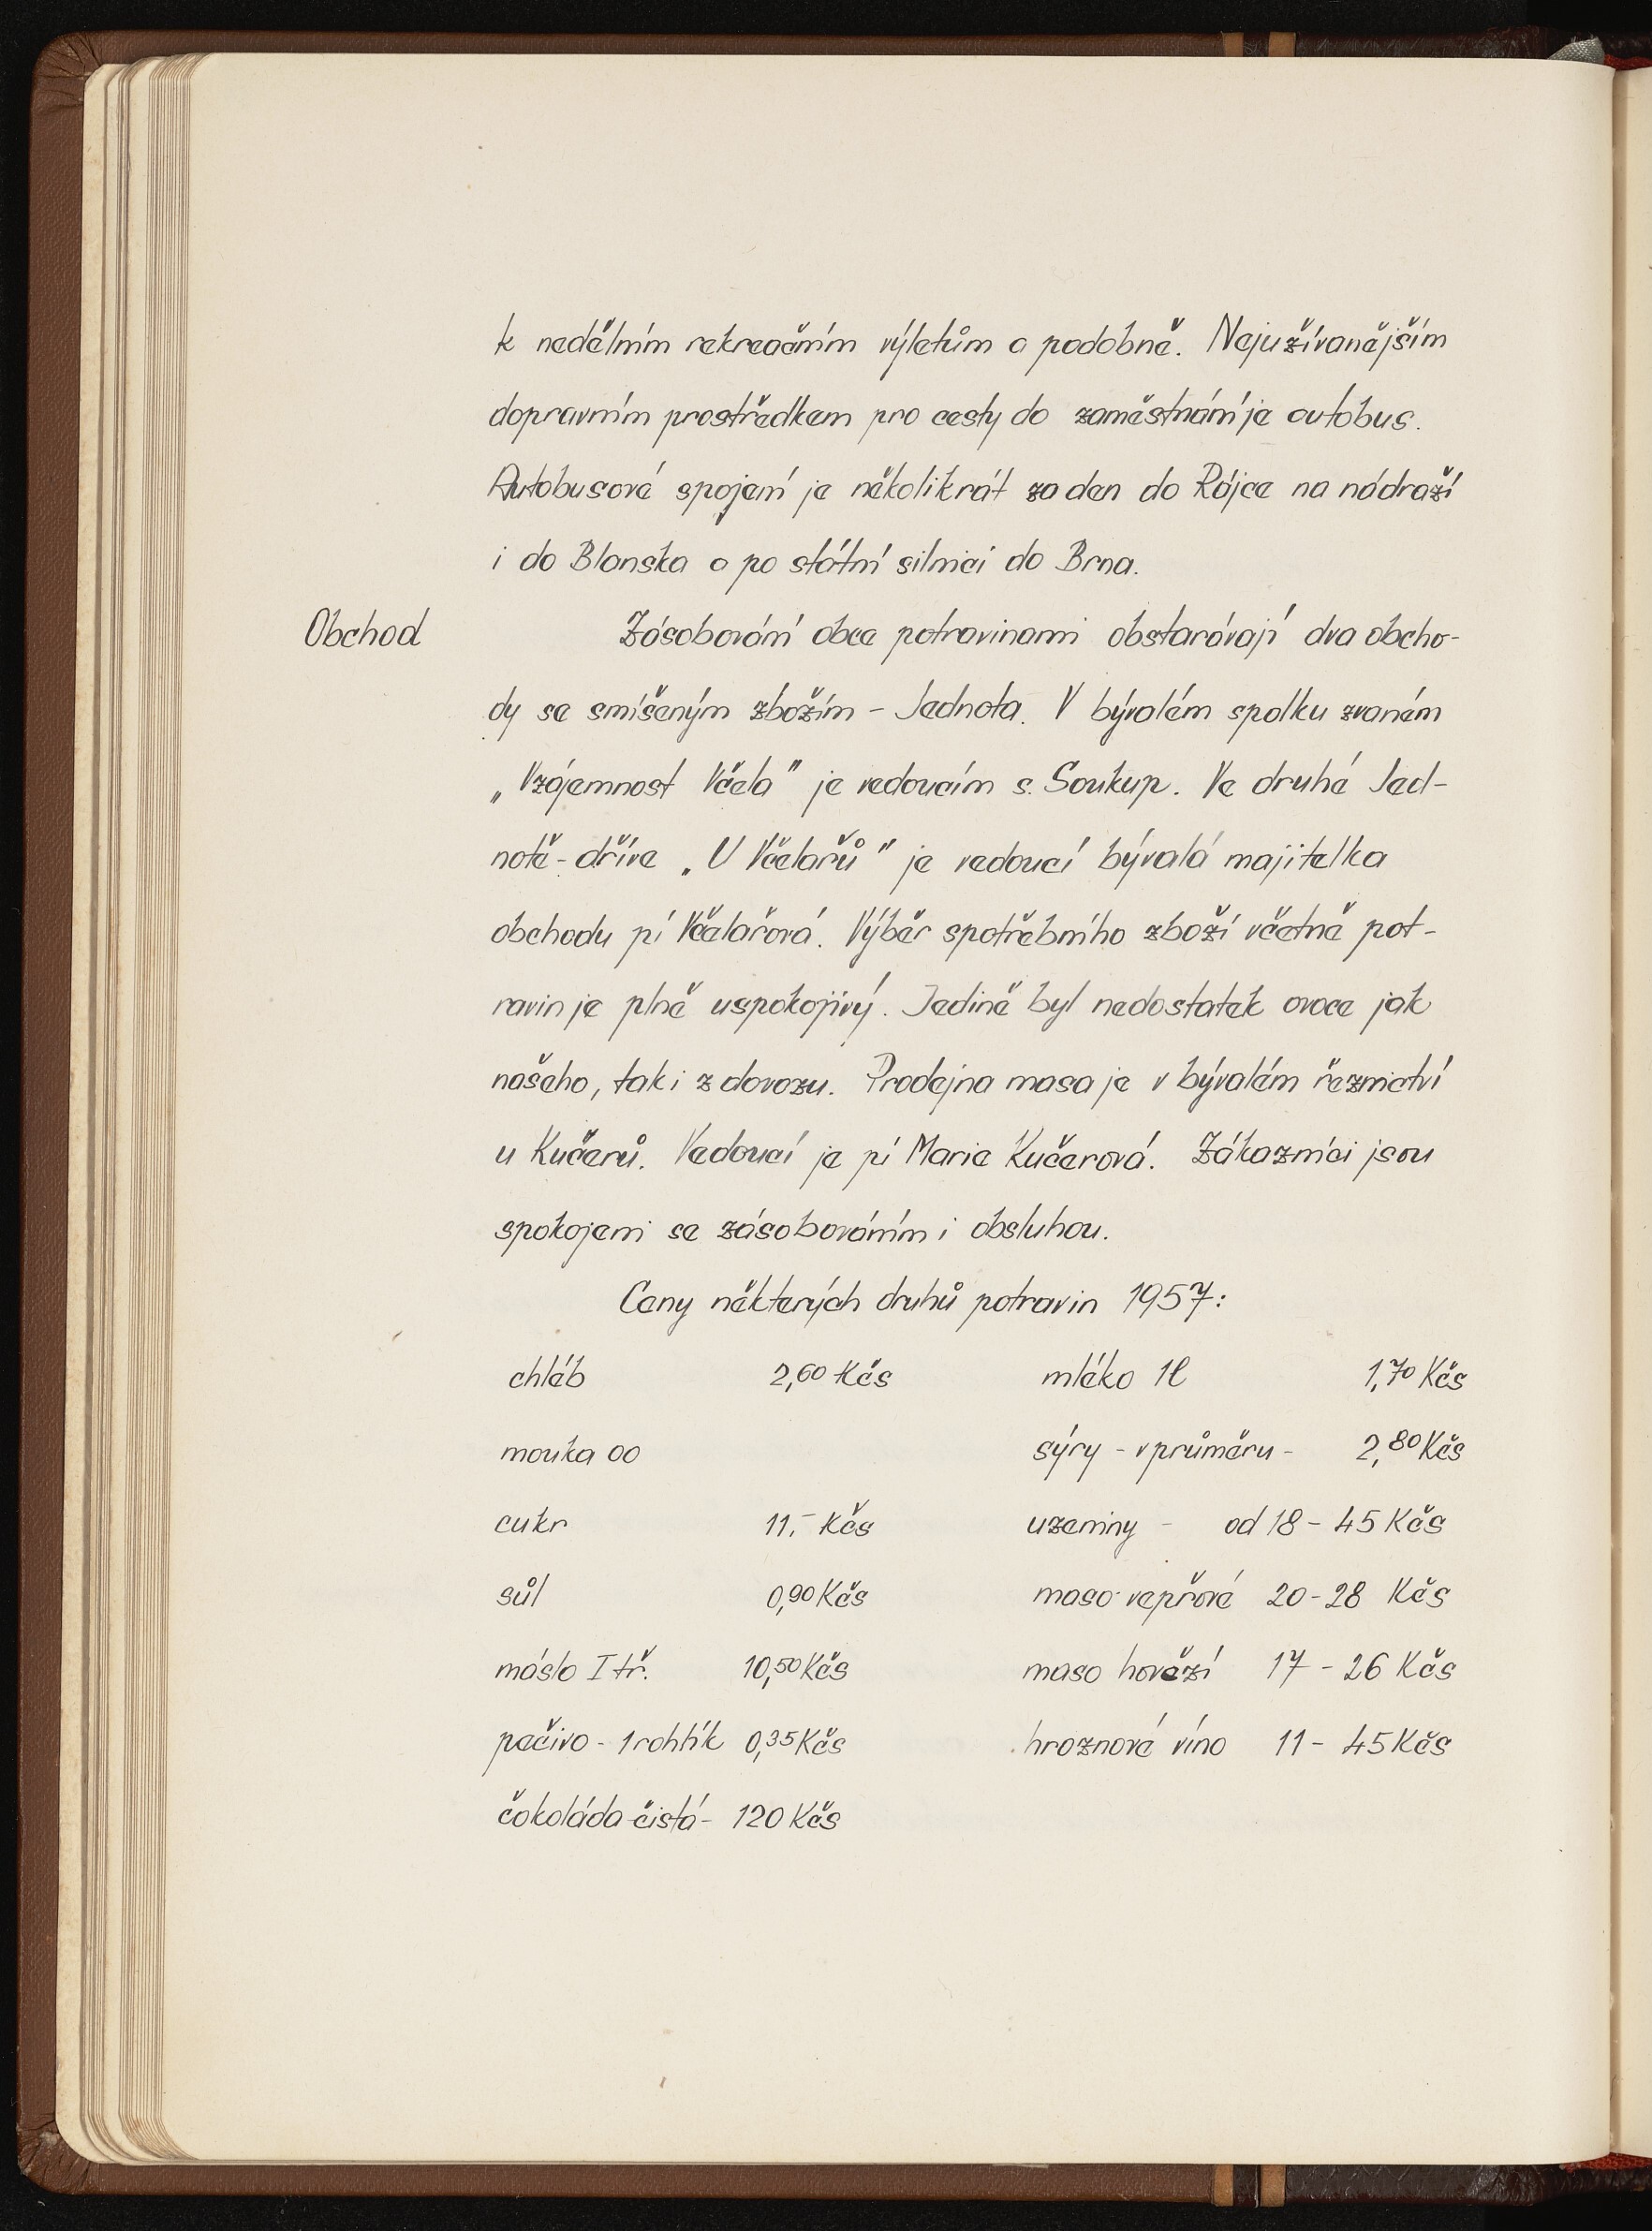 k nedělním rekreačním výletům a podobně. Nejužívanějším
dopravním prostředkem pro cesty do zaměstnání je autobus.
Autobusové spojení je několikrát za den do Rájce na nádraží
i do Blanska a po státní silnici do Brna.
Obchod
Zásobování obce potravinami obstarávají dva obcho-
dy se smíšeným zbožím - Jednota. V bývalém spolku zvaném
„Vzájemnost Včela" je vedoucím s. Soukup. Ve druhé Jed-
notě - dříve „U Včelařů" je vedoucí bývalá majitelka
obchodu pí Včelařová. Výběr spotřebního zboží včetně pot-
ravin je plně uspokojivý. Jedině byl nedostatek ovoce jak
našeho, tak i z dovozu. Prodejna masa je v bývalém řeznictví
u Kučerů. Vedoucí je pí Marie Kučerová. Zákazníci jsou
spokojeni se zásobováním i obsluhou.
Ceny některých druhů potravin 1957:
chléb 2,60 Kčs mléko 1l 1,70 Kčs
mouka 00 sýry - v průměru - 2,80 Kčs
cukr 11.- Kčs uzeniny - od 18 - 45 Kčs
sůl 0,90 Kčs maso vepřové 20-28 Kčs
máslo I tř. 10,50 Kčs maso hovězí 17 - 26 Kčs
pečivo - 1 rohlík 0,35 Kčs hroznové víno 11 - 45 Kčs
čokoláda čistá - 120 Kčs